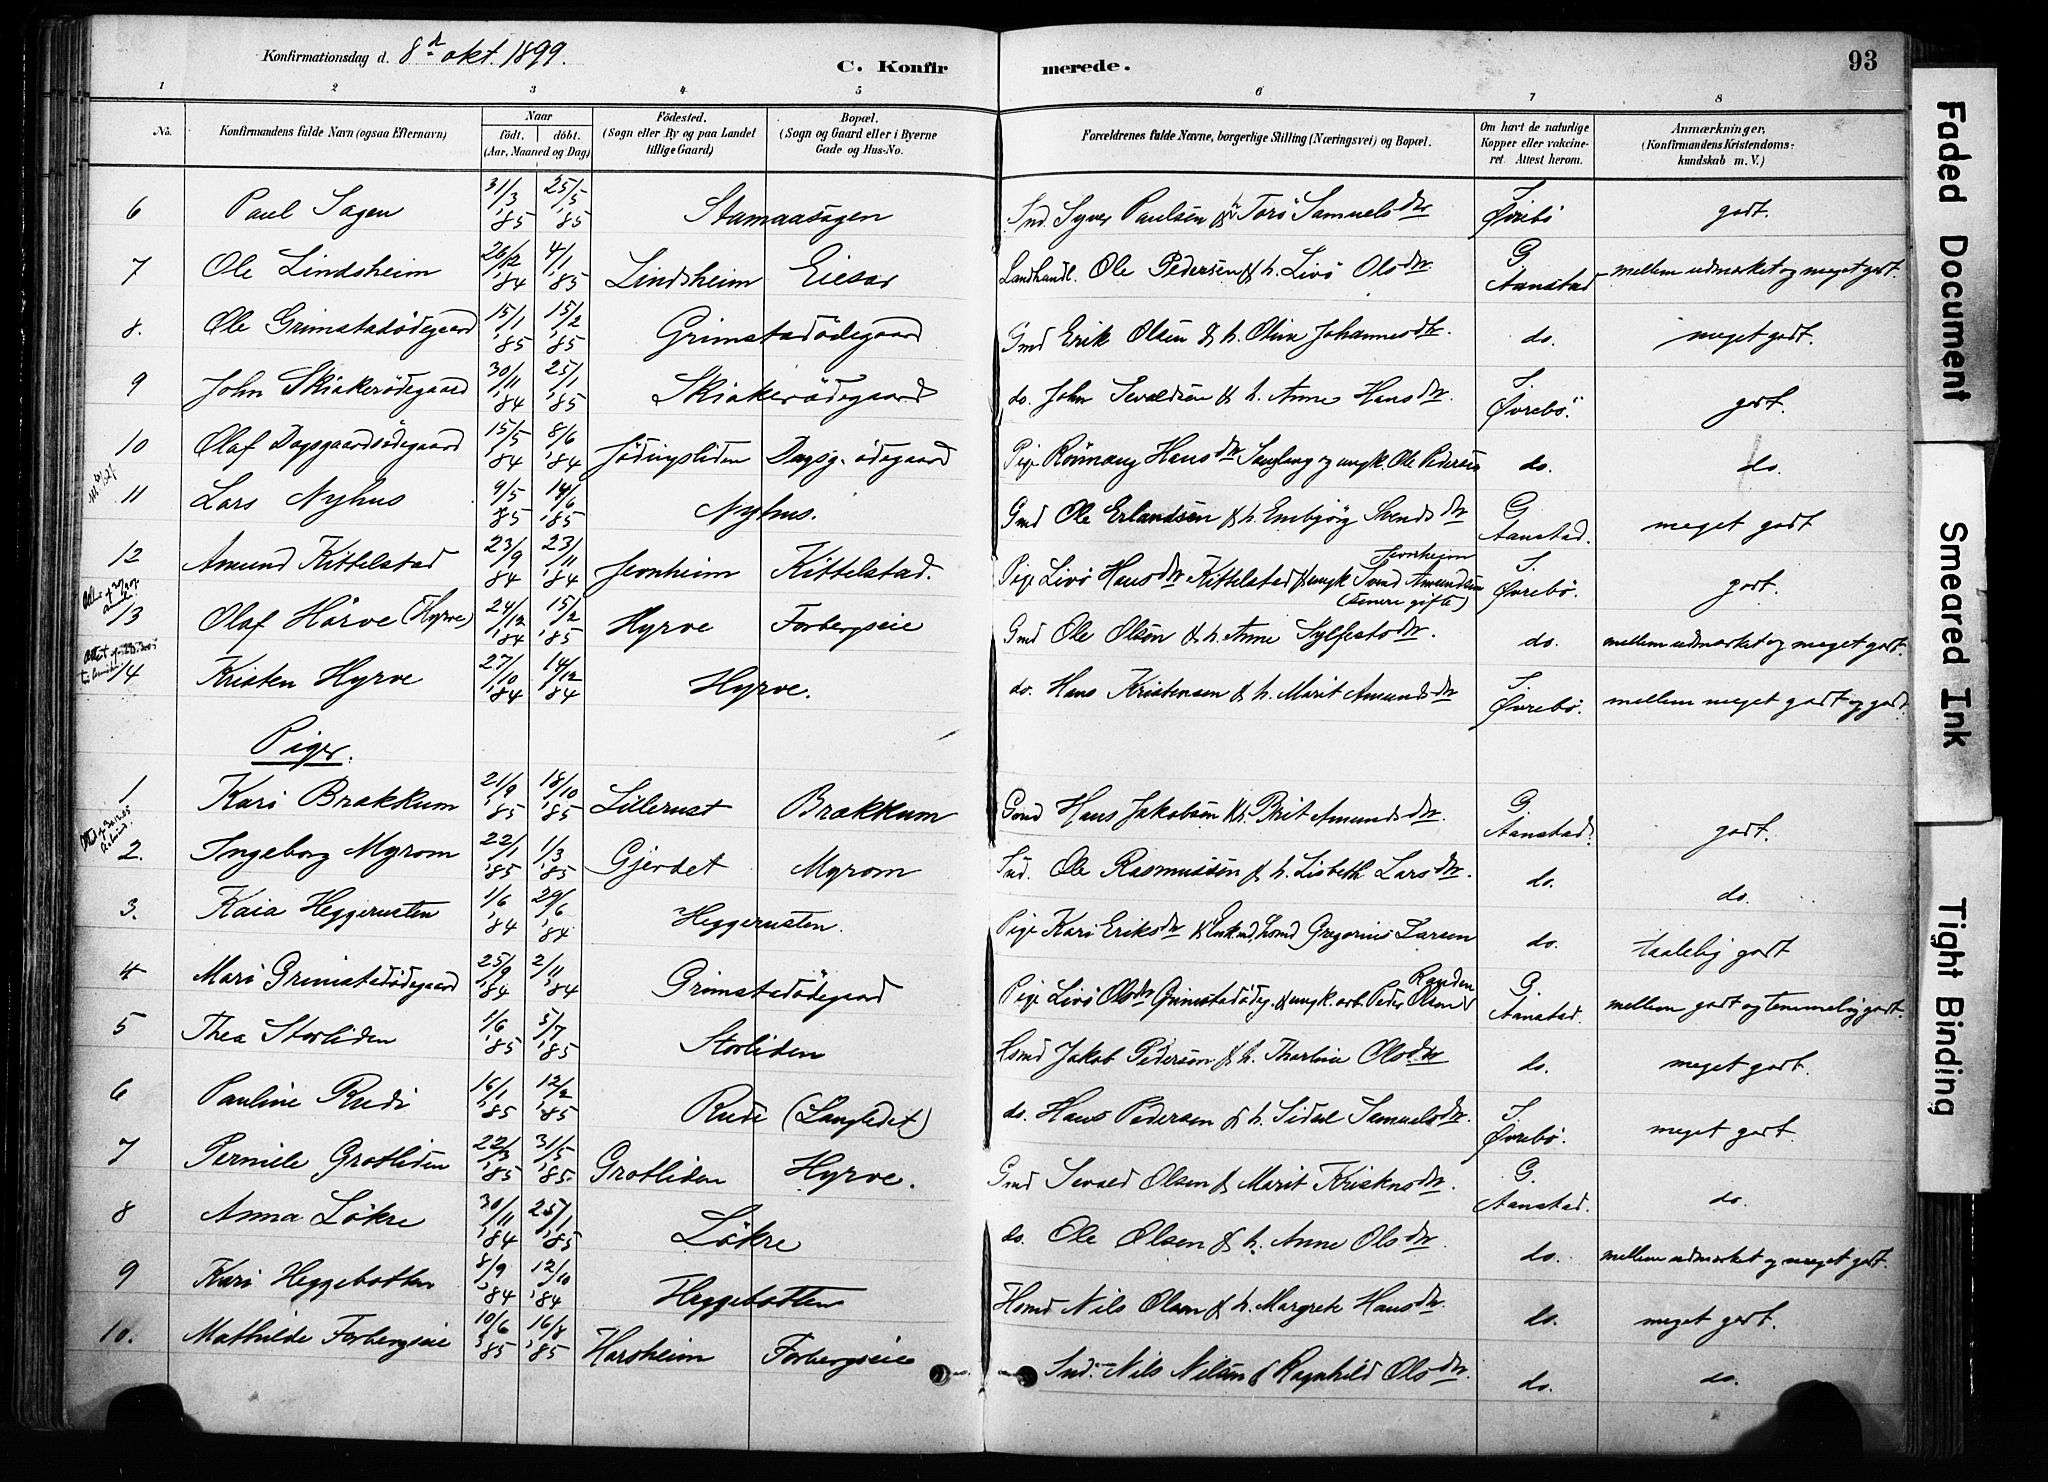 Konfirmationsdag d. 8de okt. 1899.
C. Konfir merede.
93
1 2 3 4 5 6 7 8
No. Konfirmandens fulde Navn (ogsaa Efternavn) Naar født. døbt. (Aar, Maaned og Dag) Fødested. (Sogn eller By og paa Landet tillige Gaard) Bopæl. (Sogn og Gaard eller i Byerne Gade og Hus-No. Forældrenes fulde Navne, borgerlige Stilling (Næringsvei) og Bopæl. Om havt de naturlige Kopper eller vakcineret. Attest herom. Anmærkninger. (Konfirmandens Kristendomskundskab m. V.)
6 Paul Sagen 31/3 '85 25/5 '85 Stamaasagen Ind. Syver Paulsen & h. Torö Samuelsdtr S. Øvrebö godt.
7 Ole Lindsheim 26/12 '84 4/1 '85 Lindsheim Eiesar Landhandl. Ole Pedersen & h. Livö Olsdtr. G Aanstad mellem udmærket og meget godt.
8. Ole Grimstadödegaard 15/1 '85 15/2 '85 Grimstadödegaard Gmd Erik Olsen & h. Oline Johannesdtr. do. meget godt.
9 John Skiakerödegaard 30/11 '84 25/1 '85 Skiakerödegaard do. John Sevaldsen & h. Anne Hansdtr. S. Øvrebö. godt.
10 Olaf Dagsgaardsödegaard 15/5 '84 8/6 '84 Jödingsliden Dagsg. ödegaard Pige Rönnaug Hansdtr Sanglang og ungk. Ole Pedersen do. do.
11 Lars Nyhus 9/5 '85 14/6 '85 Nyhus. Gmd Ole Erlandsen & h. Embjörg Svendsdtr G Aanstad. meget godt
12 Amund Kittelstad 23/9 '84 23/11 '84 Jevnheim Kittelstad. Pige Livö Hansdtr Kittelstad & ungk Svend Amundsen Jevnheim (senere gifte) S. Øvrebö. godt.
13 Olaf Hörve (Hyrve) 24/12 '84 15/2 '85 Hyrve Forbergseie Gmd Ole Olsen & h. Anne Sylfestsdtr. do. mellem udmærket og meget godt.
14 Kristen Hyrve 27/10 '84 14/12 '84 Hyrve. do. Hans Kristensen & h. Marit Amundsdtr S. Øvrebö. mellem meget godt og godt.
Piger.
1 Kari Brækkum 21/9 '85 18/10 '85 Lillerust Brækkum Gmd Hans Jakobsen & h. Brit Amundsdtr. G. Aanstad. godt.
2. Ingeborg Myrom 22/1 '85 1/3 '85 Gjerdet Myrom Ind. Ole Rasmussen & h. Lisbeth Larsdtr. do. do.
3. Kaia Heggerusten 1/6 '84 29/6 '84 Heggerusten. Pige Kari Eriksdtr & Enkmd, Gregorius Larsen do. taalelig godt
4 Mari Grimstadödegaard 25/9 '84 2/11 '84 Grimstadödegaard Pige Livö Olsdtr Grimstadödeg. & ungk. arb. Peder Olsen Randen G. Aanstad. mellem godt og temmelig godt.
5 Thea Storliden 1/6 '85 5/7 '85 Storliden Hsmd Jakob Pedersen & h. Thorline Olsdtr do. meget godt.
6 Pauline Rudi 16/1 '85 12/2 '85 Rudi (Langledet) do. Hans Pedersen & h. Sidsel Samuelsdtr. S. Øvrebö. meget godt.
7 Pernille Grotliden 22/3 '85 31/5 '85. Grotliden Hyrve. Gmd Sevald Olsen & Marit Kristensdtr. G. Aanstad. do.
8 Anna Lökre 30/11 '84 25/1 '85 Lökre do. Ole Olsen & h. Anne Olsdtr do. mellem udmærket og meget godt.
9 Kari Heggebotten 8/9 '84 12/10 '84 Heggebotten Hsmd Nils Olsen & h. Margrete Hansdtr. do. meget godt.
10. Mathilde Forbergseie 10/6 '85 16/8 '85 Harsheim Forbergseie Ind. Nils Nilsen & Ragnhild Olsdtr. do. do.
Faded Document
Smeared Ink
Tight Binding